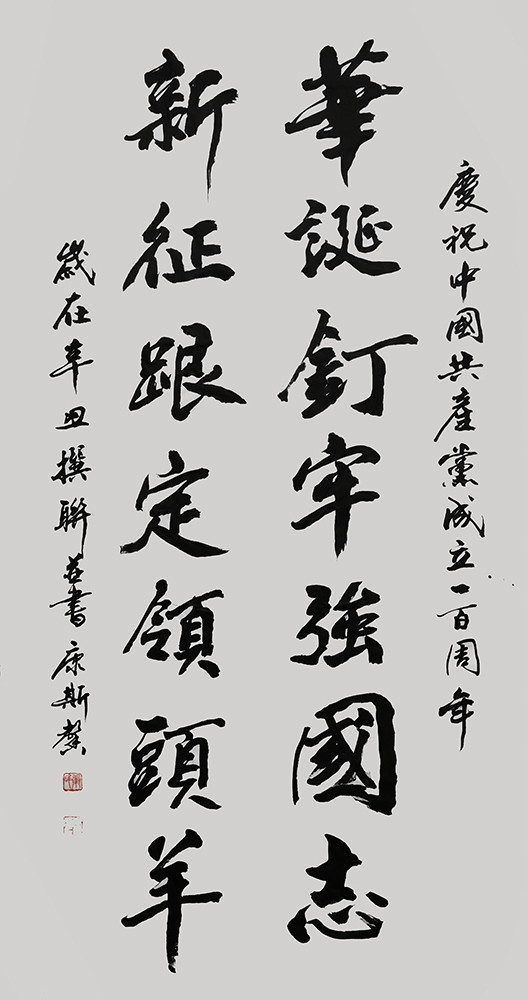 慶祝中國共產黨成立一百周年
華誕釘牢強國志
新征跟定領頭羊
歲在辛丑撰聯并書康斯馨